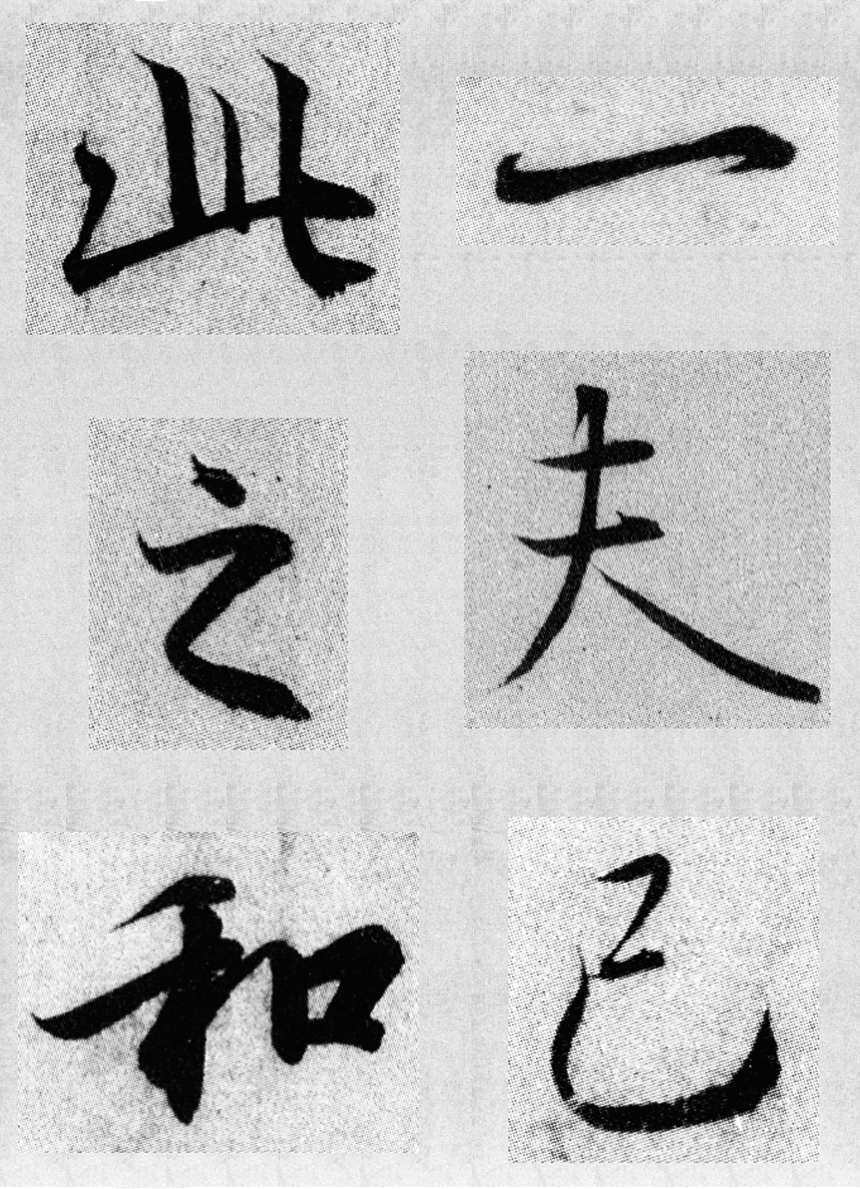 一夫已
此之和